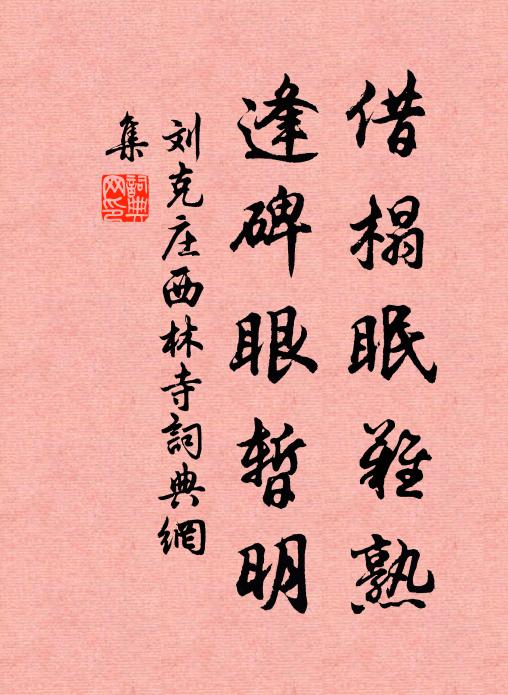 借榻眠难熟
逢碑眼暂明
刘克庄西林寺詞典網
集
詞典网印